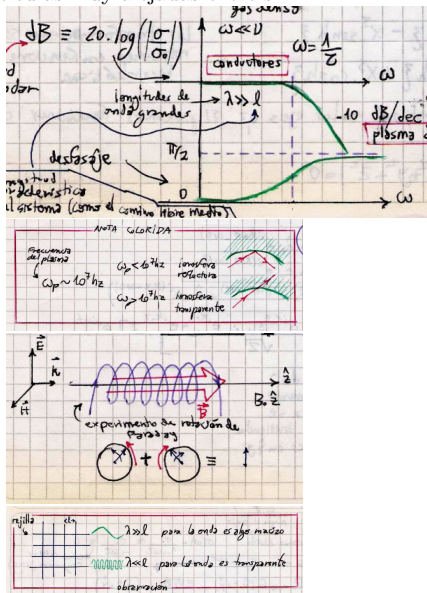 gas denso
dB ≡ 20. log(|σ/σ₀|)
ω<<ν
conductores
ω=1/τ
ω
longitudes de onda grandes
λ>>l
-10 dB/dec
plasma
desfasaje
π/2
0
ω
del sistema (como el camino libre medio)
NOTA COLORIDA
Frecuencia del plasma
ωp ~ 10⁷hz
ωp < 10⁷hz ionosfera reflectora
ω > 10⁷hz ionosfera transparente
E
k
H
B
ẑ
B₀ ẑ
experimento de rotación de Faraday
+ ≡
rejilla
λ>>l para la onda es algo macizo
λ<<l para la onda es transparente
observación